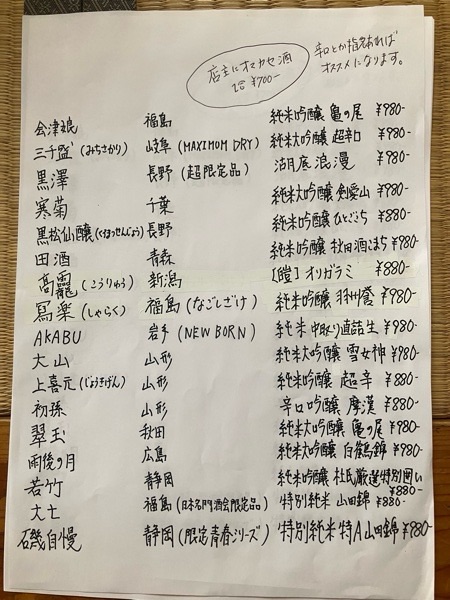 店主にオマカセ酒
1合 ¥700-
辛口とか指名あれば
オススメになります。
会津娘 福島 純米吟醸 亀の尾 ¥980-
三千盛 (みちさかり) 岐阜 (MAXIMUM DRY) 純米大吟醸 超辛口 ¥980-
黒澤 長野 (超限定品) 湖底浪漫 ¥980-
寒菊 千葉 純米大吟醸 剣愛山 ¥980-
黒松仙醸 (くろまつせんじょう) 長野 純米吟醸 ひとごこち ¥880-
田酒 青森 純米吟醸 秋田酒こまち ¥980-
高龗 (こうりゅう) 新潟 [瞪] オリガラミ ¥880-
冩楽 (しゃらく) 福島 (なごしざけ) 純米吟醸 羽州誉 ¥980-
AKABU 岩手 (NEW BORN) 純米 中取り直詰生 ¥980-
大山 山形 純米大吟醸 雪女神 ¥980-
上喜元 (じょうきげん) 山形 純米吟醸 超辛 ¥880-
初孫 山形 辛口吟醸 摩漢 ¥880-
翠玉 秋田 純米大吟醸 亀の尾 ¥980-
雨後の月 広島 純米大吟醸 白鶴錦 ¥980-
若竹 静岡 純米吟醸 杜氏厳選特別囲い ¥880-
大七 福島 (日本名門酒会限定品) 特別純米 山田錦 ¥880-
磯自慢 静岡 (限定青春シリーズ) 特別純米 特A山田錦 ¥980-